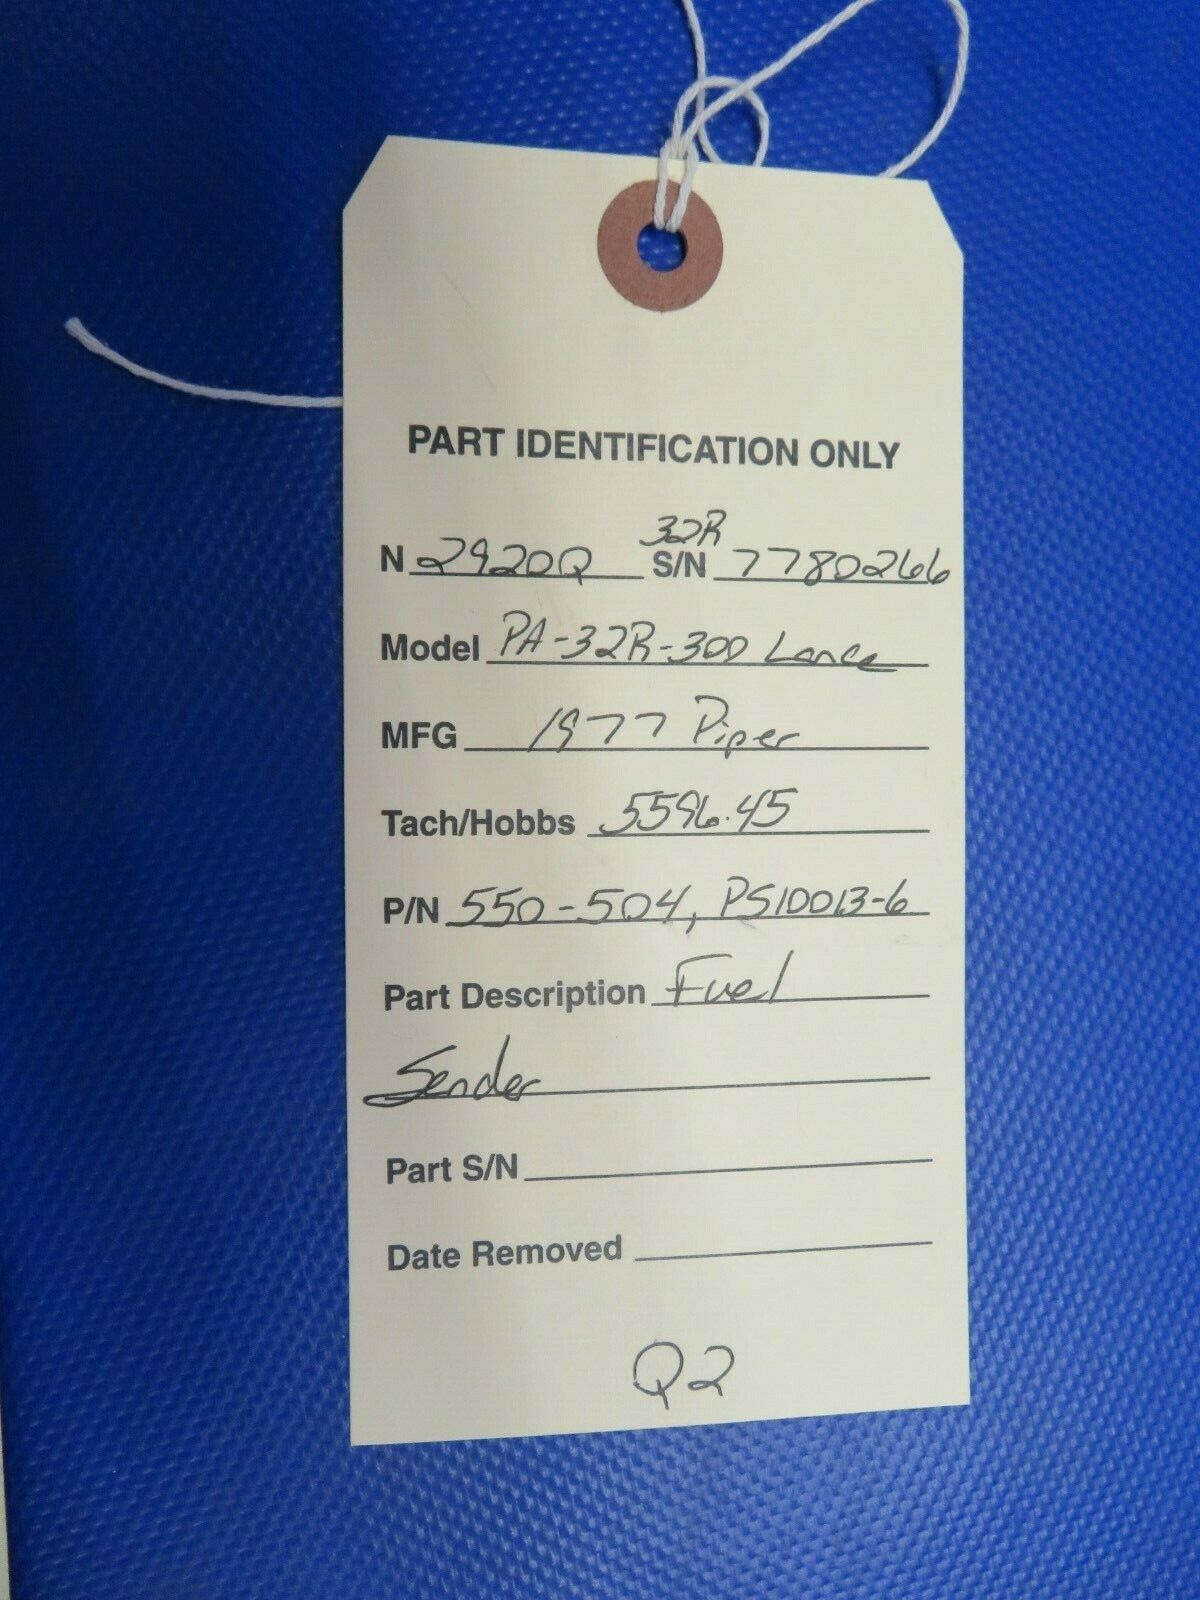 PART IDENTIFICATION ONLY
N 2920Q 32R S/N 7780266
Model PA-32R-300 Lance
MFG 1977 Piper
Tach/Hobbs 5596.45
P/N 550-504, PS10013-6
Part Description Fuel
Sender
Part S/N
Date Removed
Q2